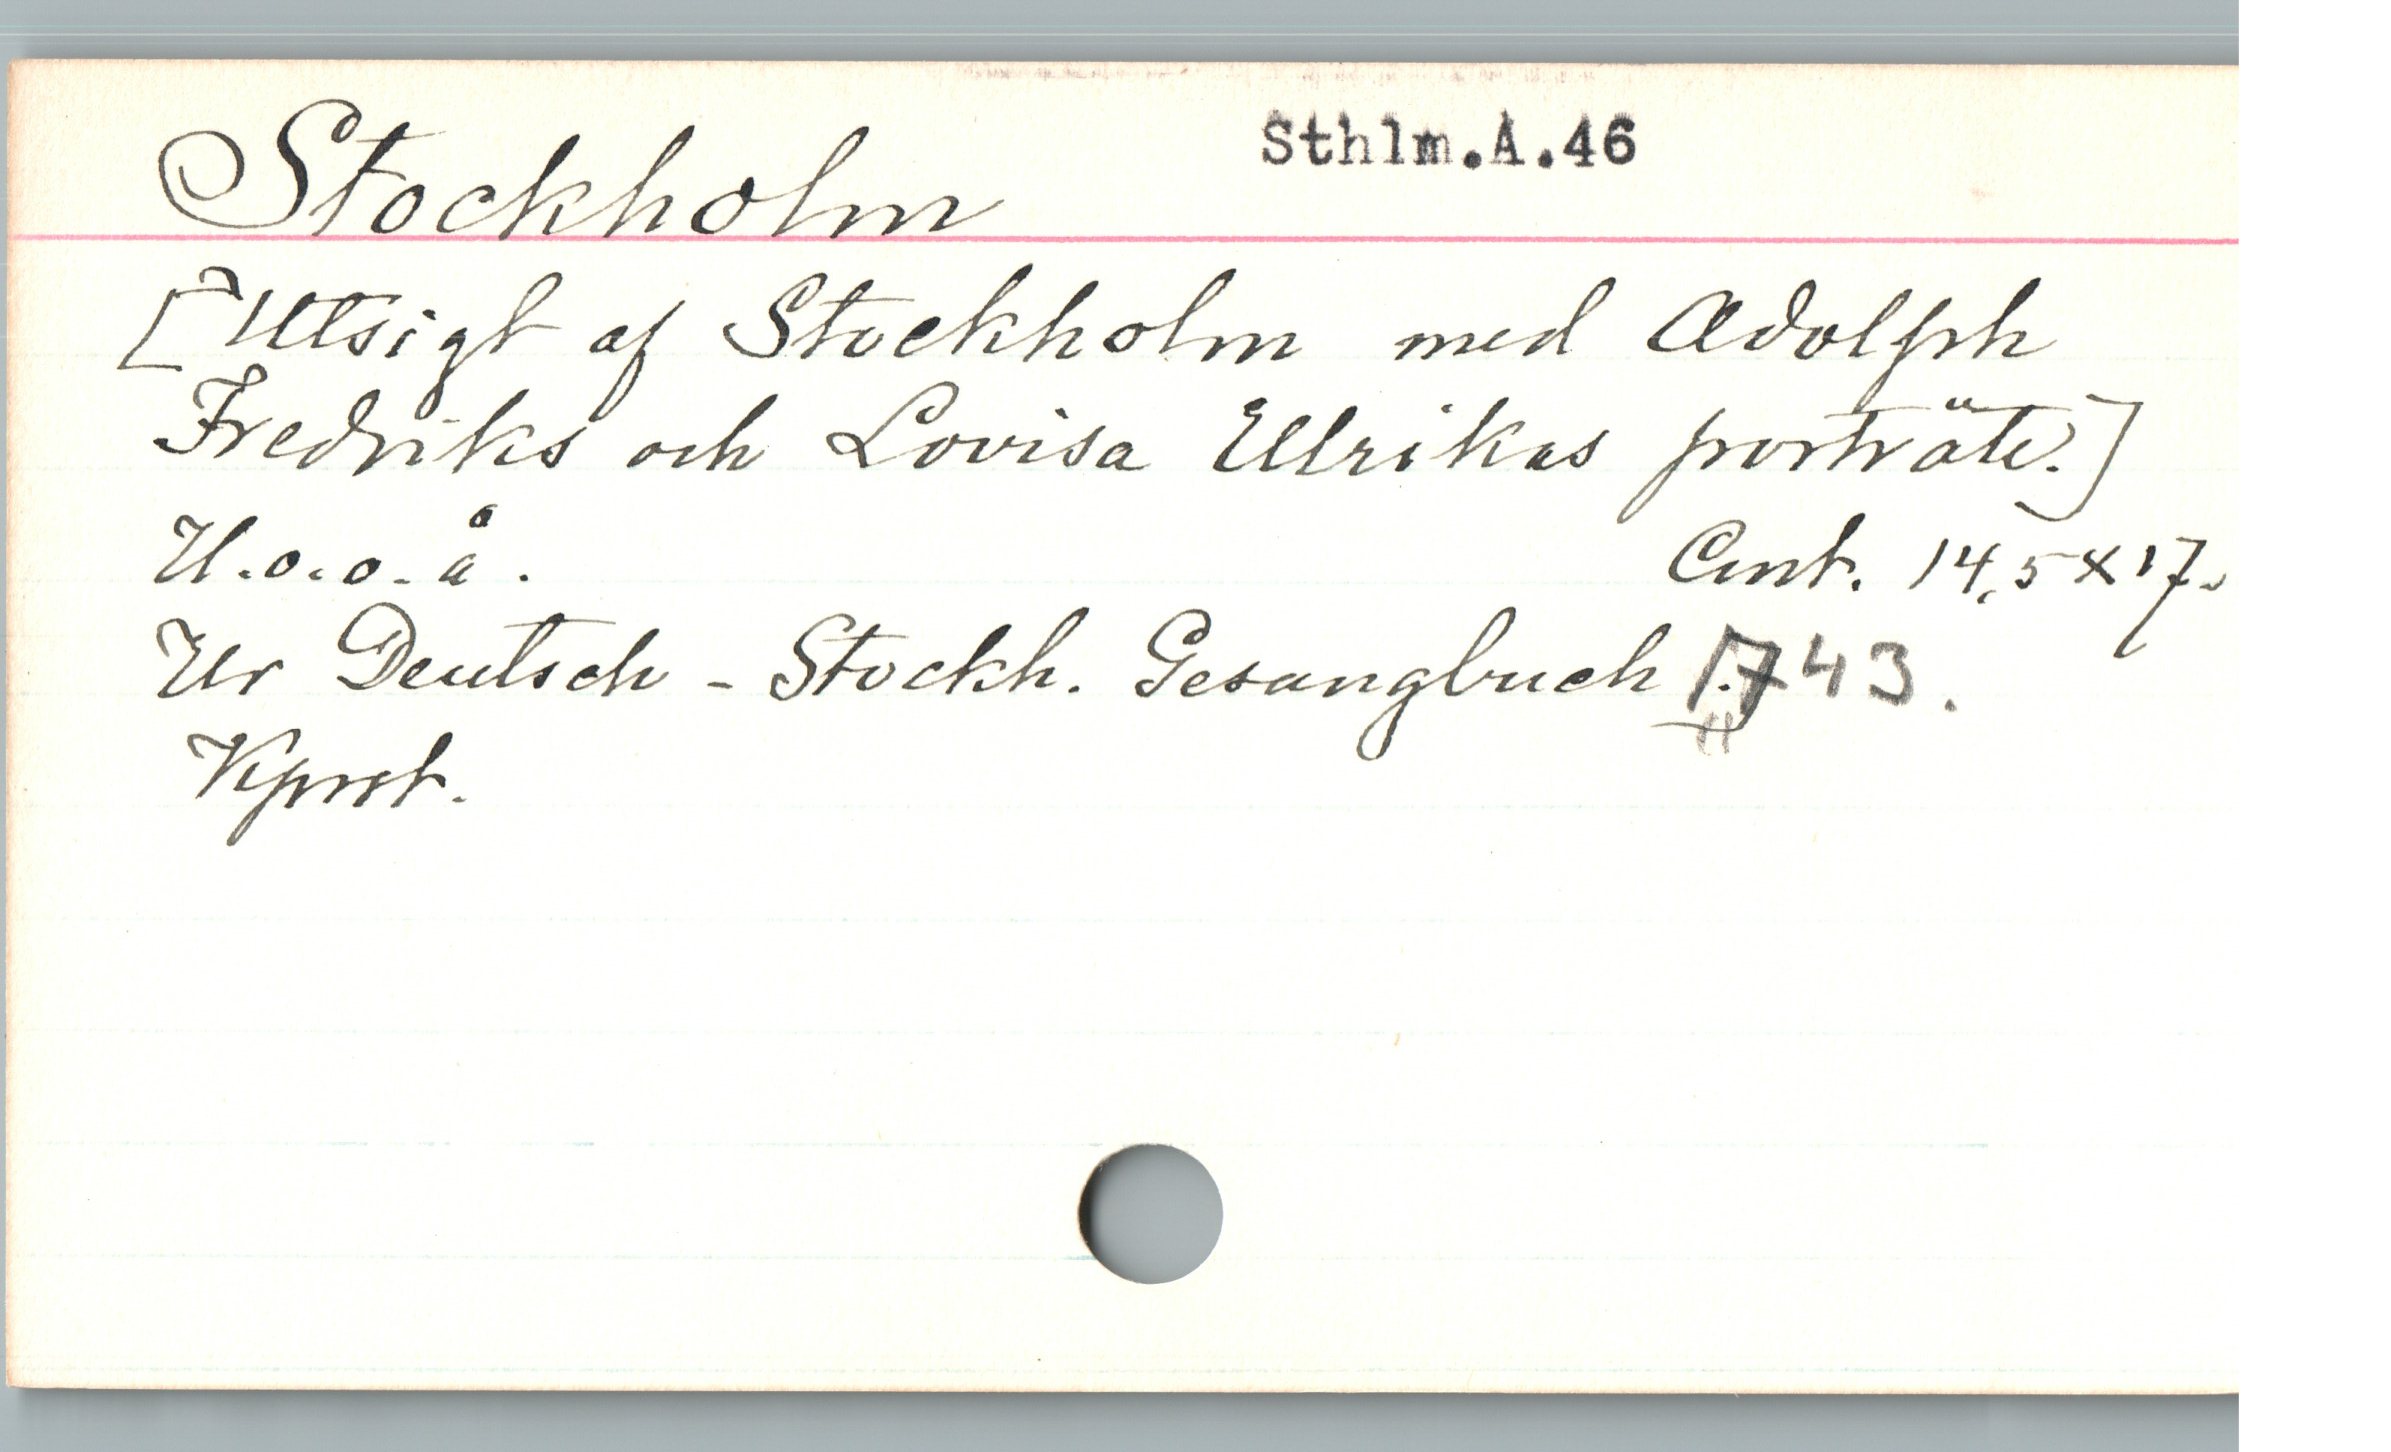 Stockholm Sthlm.A.46
[Utsigt af Stockholm med Adolph
Fredriks och Lovisa Ulrikas porträtt.]
U.o.o.å. Cmt. 14,5 x 17.
Ur Deutsch-Stockh. Gesangbuch 1743.
Kprst.